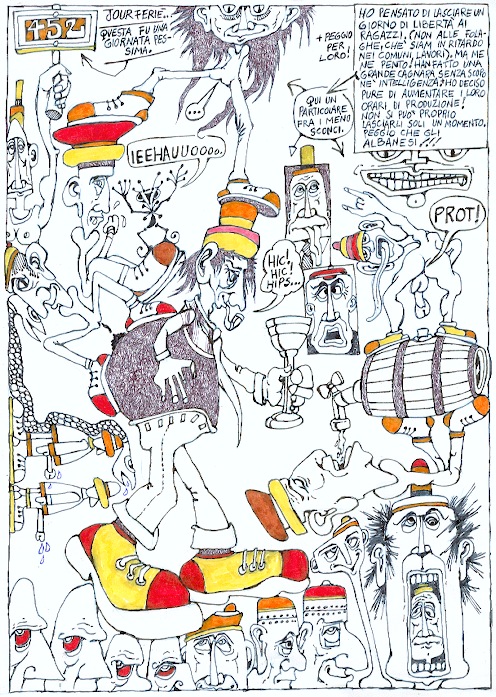 452
JOUR FERIE...
QUESTA FU UNA
GIORNATA PES-
SIMA.
+ PEGGIO
PER
LORO!
HO PENSATO DI LASCIARE UN
GIORNO DI LIBERTÀ AI
RAGAZZI, (NON ALLE FOLA-
GHE, CHE' SIAM IN RITARDO
NEI COMUNI LAVORI), MA ME
NE PENTO! HAN FATTO UNA
GRANDE CAGNARA, SENZA SCOPO
NE' INTELLIGENZA! HO DECISO
PURE DI AUMENTARE I LORO
ORARI DI PRODUZIONE!
NON SI PUO' PROPRIO
LASCIARLI SOLI UN MOMENTO,
PEGGIO CHE GLI
ALBANESI!!!
QUI UN
PARTICOLARE
FRA I MENO
SCONCI.
...
IEEHAUUOOOO..
PROT!
HIC!
HIC!
HIPS...